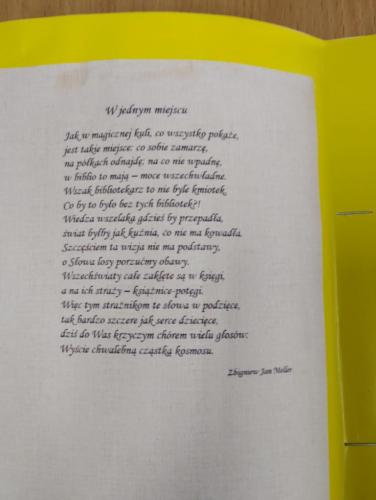 W jednym miejscu
Jak w magicznej kuli, co wszystko pokaże,
jest takie miejsce: co sobie zamarzę,
na półkach odnajdę; na co nie wpadnę,
w biblio to mają – moce wszechwładne.
Wszak bibliotekarz to nie byle kmiotek.
Co by to było bez tych bibliotek?!
Wiedza wszelaka gdzieś by przepadła,
świat byłby jak kuźnia, co nie ma kowadła.
Szczęściem ta wizja nie ma podstawy,
o Słowa losy porzućmy obawy.
Wszechświaty całe zaklęte są w księgi,
a na ich straży – książnice-potęgi.
Więc tym strażnikom te słowa w podzięce,
tak bardzo szczere jak serce dziecięce,
dziś do Was krzyczym chórem wielu głosów:
Wyście chwalebną cząstką kosmosu.
Zbigniew Jan Meller